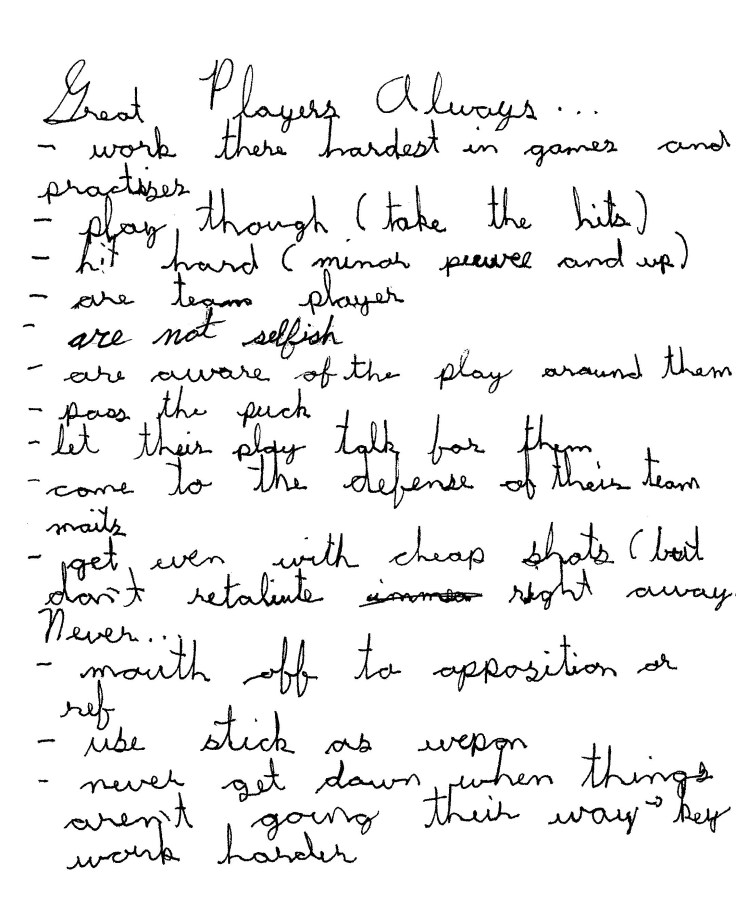 Great Players Always...
- work there hardest in games and
practises
- play though (take the hits)
- hit hard (minor peewee and up)
- are team player
- are not selfish
- are aware of the play around them
- pass the puck
- let their play talk for them
- come to the defense of their team
maits
- get even with cheap shots (but
don't retaliate right away.
Never...
- mouth off to opposition or
ref
- use stick as wepon
- never get down when things
aren't going their way → key
work harder